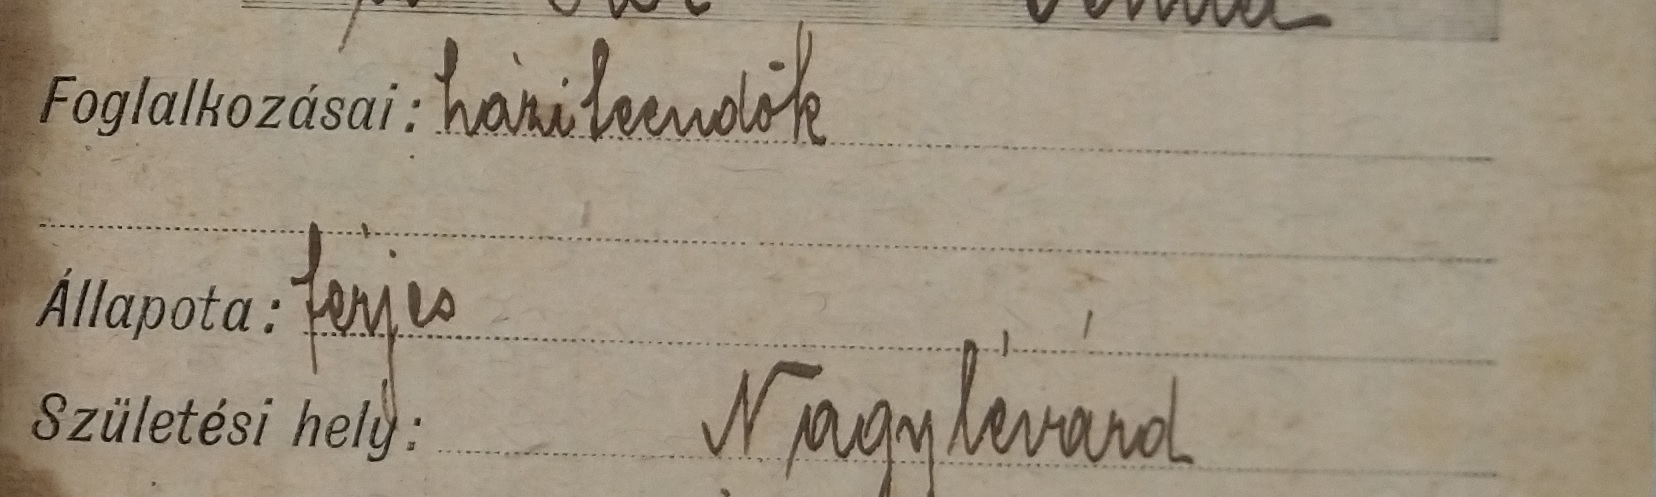 Foglalkozásai: házi teendők
Állapota: férjes
Születési hely: Nagylévárd